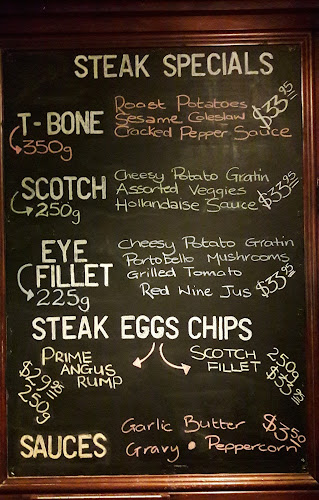 STEAK SPECIALS
T-BONE
350g
Roast Potatoes
Sesame Coleslaw
Cracked Pepper Sauce
$33.95
SCOTCH
250g
Cheesy Potato Gratin
Assorted Veggies
Hollandaise Sauce
$33.95
EYE
FILLET
225g
Cheesy Potato Gratin
Portobello Mushrooms
Grilled Tomato
Red Wine Jus
$33.95
STEAK EGGS CHIPS
PRIME
ANGUS
RUMP
250g
SCOTCH
FILLET
250g
SAUCES
Garlic Butter
Gravy • Peppercorn
$3.50